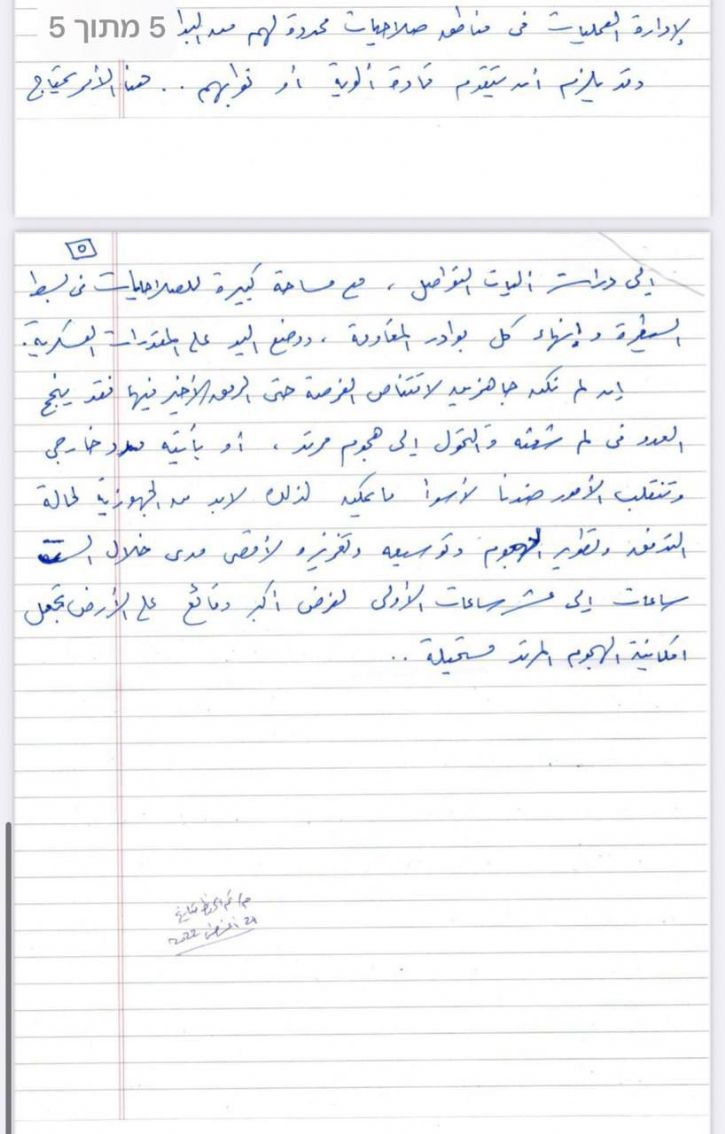 5 מתוך 5
لإدارة العمليات في مناطق صلاحيات محددة لهم منذ البدا
وقد يلزم أن يتقدم قادة ألوية أو نوابهم .. هنا الأمر يحتاج
٥
إلى دراسة آليات التواصل ، مع مساحة كبيرة للصلاحيات في بسط
السيطرة وإنهاء كل بوادر المقاومة ، ووضع اليد على المقدرات العسكرية.
إن لم نكن جاهزين لاقتناص الفرصة حتى الرمق الأخير فيها فقد ينجح
العدو في لم شعثه والتحول إلى هجوم مرتد ، أو يأتيه مدد خارجي
وتنقلب الأمور ضدنا لأسوأ ما يمكن لذلك لابد من الجهوزية لحالة
التدفق وتطوير الهجوم وتوسيعه وتعزيزه لأقصى مدى خلال الست
ساعات إلى عشر ساعات الأولى لفرض أكبر وقائع على الأرض تجعل
امكانية الهجوم المرتد مستحيلة ..
24 أغسطس 2022